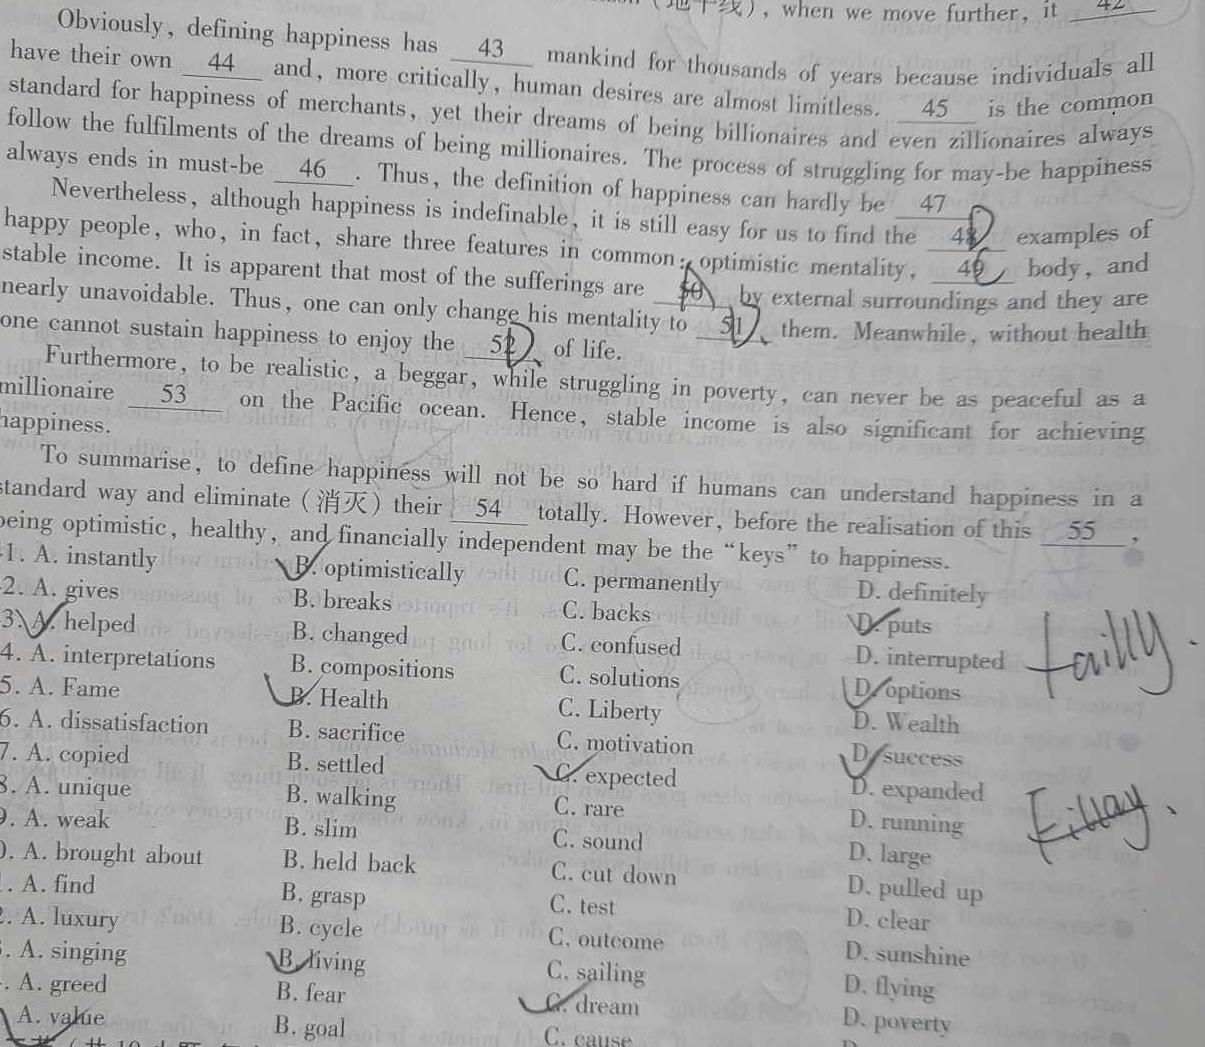 (地平线), when we move further, it 42
Obviously, defining happiness has 43 mankind for thousands of years because individuals all
have their own 44 and, more critically, human desires are almost limitless. 45 is the common
standard for happiness of merchants, yet their dreams of being billionaires and even zillionaires always
follow the fulfilments of the dreams of being millionaires. The process of struggling for may-be happiness
always ends in must-be 46. Thus, the definition of happiness can hardly be 47
Nevertheless, although happiness is indefinable, it is still easy for us to find the 48 examples of
happy people, who, in fact, share three features in common: optimistic mentality, 49 body, and
stable income. It is apparent that most of the sufferings are 50 by external surroundings and they are
nearly unavoidable. Thus, one can only change his mentality to 51 them. Meanwhile, without health
one cannot sustain happiness to enjoy the 52 of life.
Furthermore, to be realistic, a beggar, while struggling in poverty, can never be as peaceful as a
millionaire 53 on the Pacific ocean. Hence, stable income is also significant for achieving
happiness.
To summarise, to define happiness will not be so hard if humans can understand happiness in a
standard way and eliminate (消灭) their 54 totally. However, before the realisation of this 55,
being optimistic, healthy, and financially independent may be the "keys" to happiness.
1. A. instantly B. optimistically C. permanently D. definitely
2. A. gives B. breaks C. backs D. puts
3. A. helped B. changed C. confused D. interrupted
4. A. interpretations B. compositions C. solutions D. options
5. A. Fame B. Health C. Liberty D. Wealth
6. A. dissatisfaction B. sacrifice C. motivation D. success
7. A. copied B. settled C. expected D. expanded
8. A. unique B. walking C. rare D. running
9. A. weak B. slim C. sound D. large
0. A. brought about B. held back C. cut down D. pulled up
. A. find B. grasp C. test D. clear
2. A. luxury B. cycle C. outcome D. sunshine
. A. singing B. living C. sailing D. flying
. A. greed B. fear C. dream D. poverty
A. value B. goal C. cause